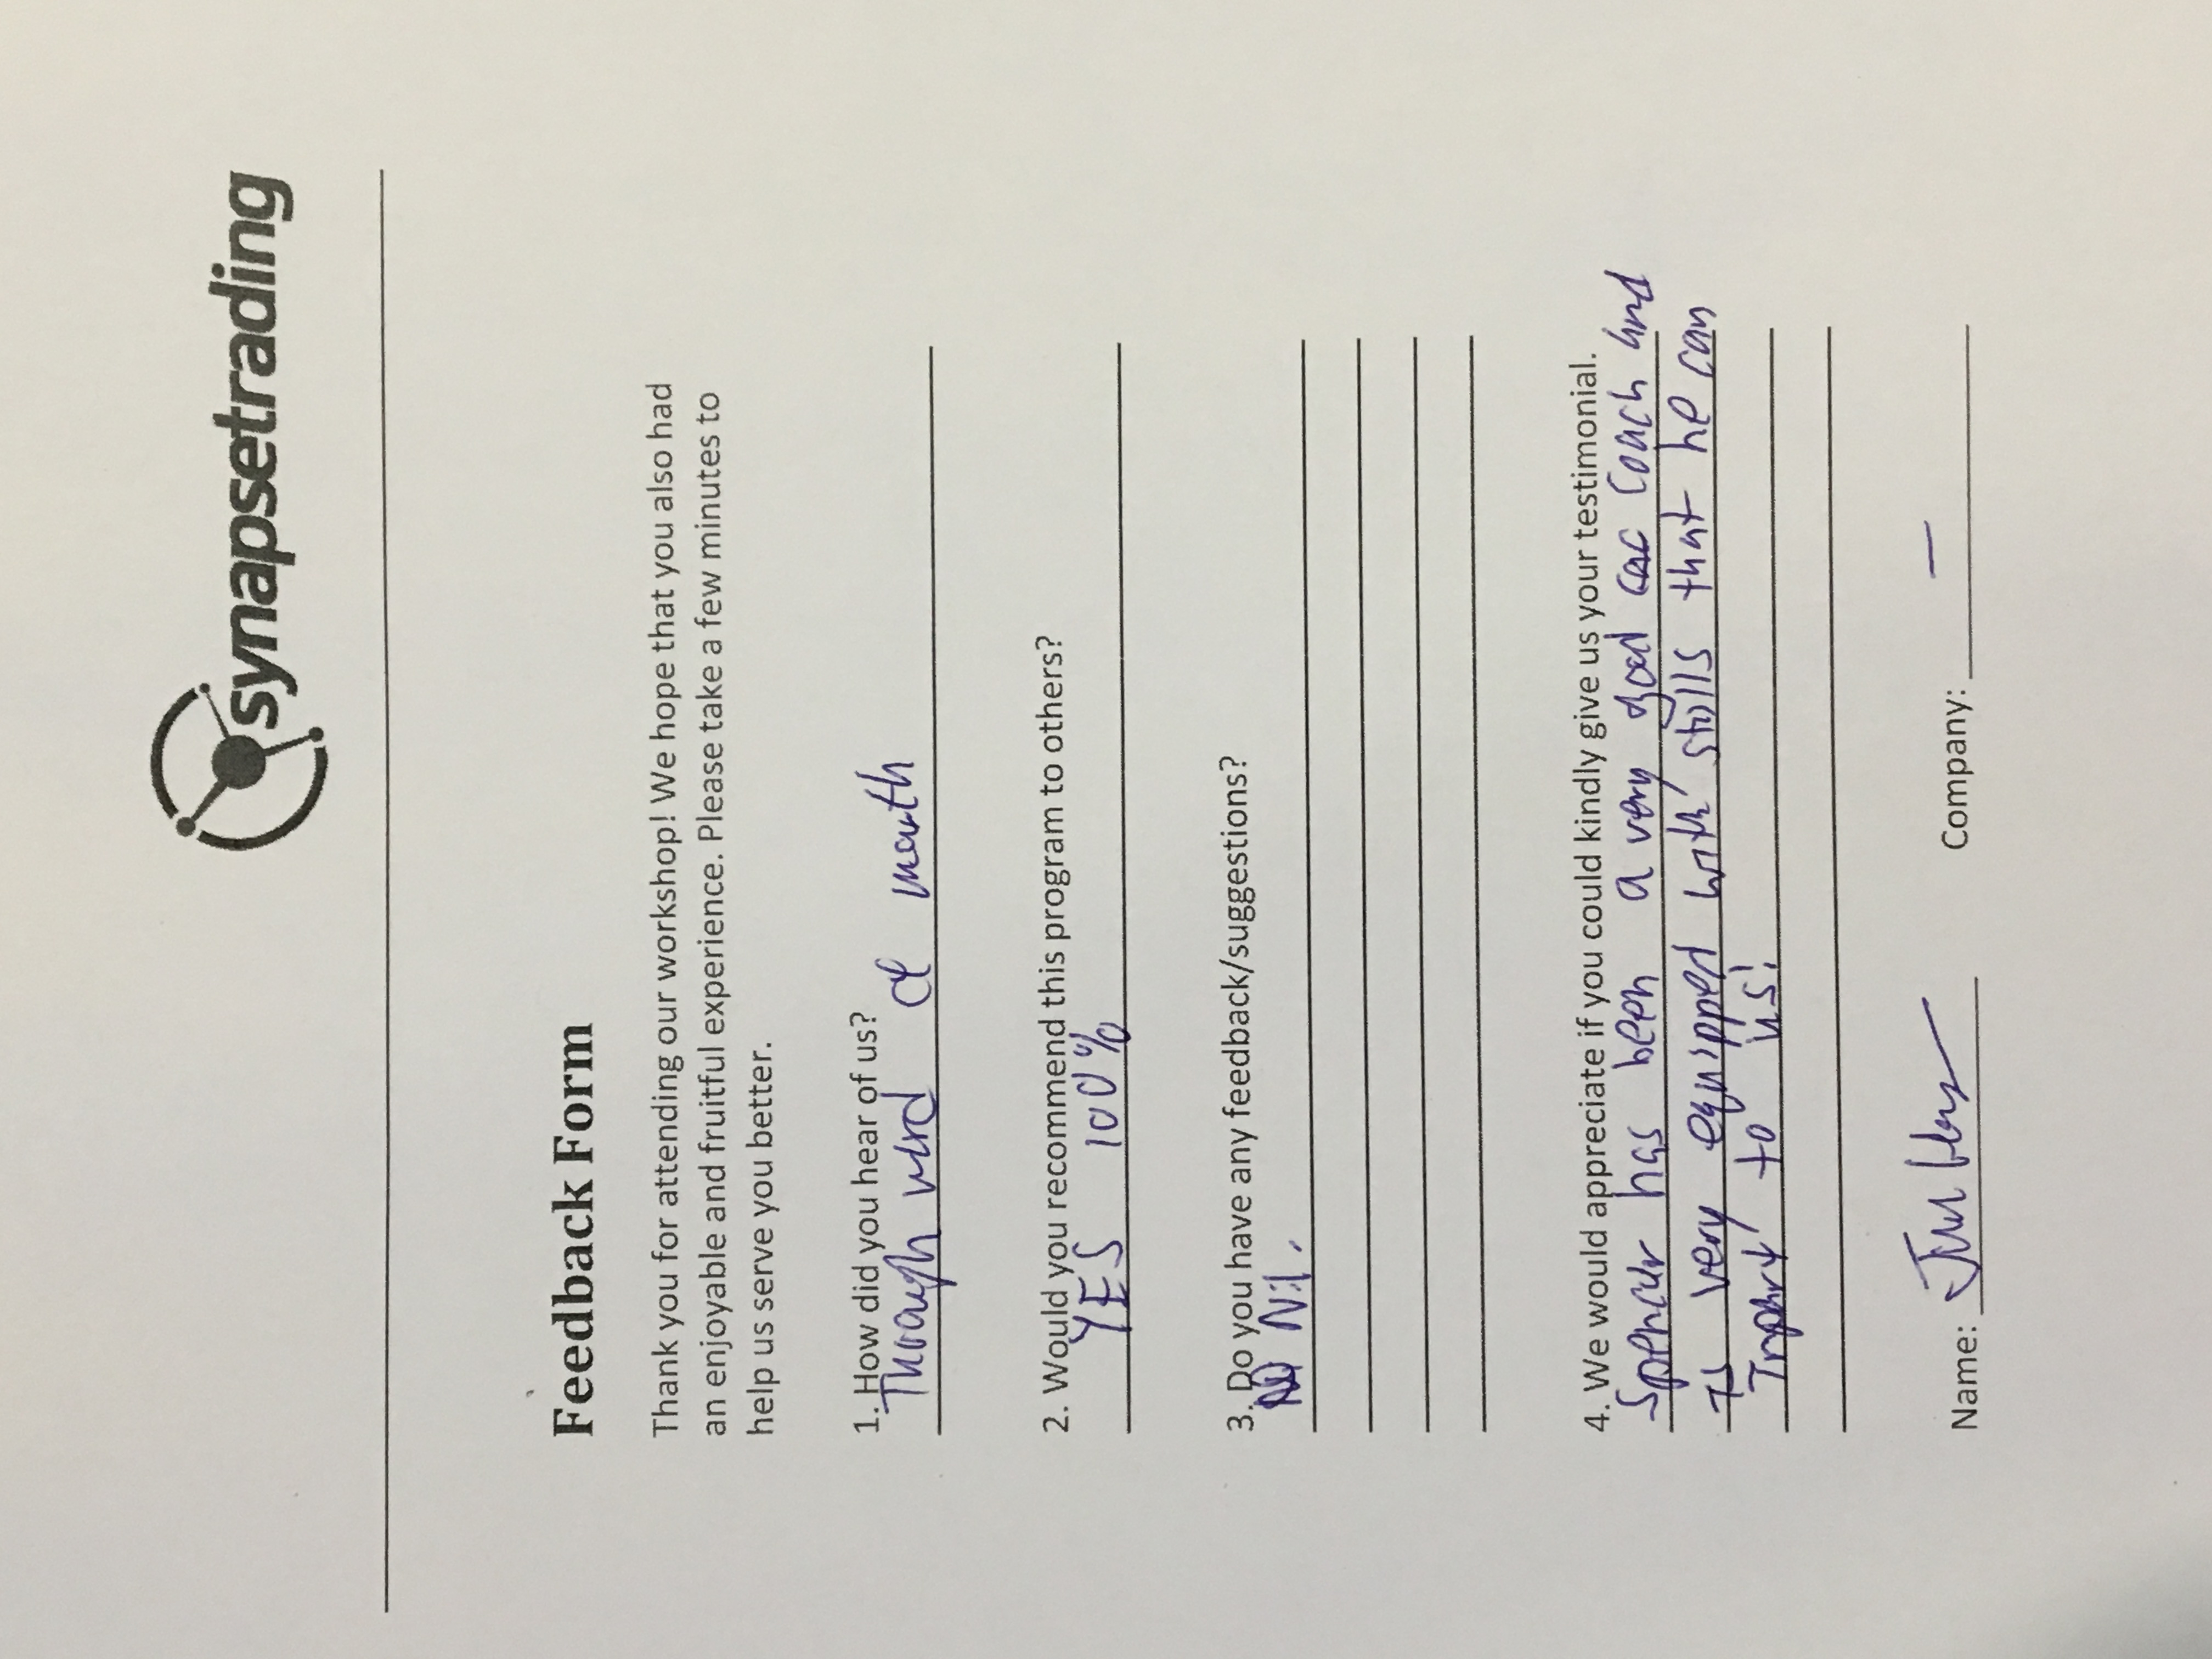 synapsetrading
Feedback Form
Thank you for attending our workshop! We hope that you also had
an enjoyable and fruitful experience. Please take a few minutes to
help us serve you better.
1. How did you hear of us?
Through word of mouth
2. Would you recommend this program to others?
YES 100%
3. Do you have any feedback/suggestions?
Nil.
4. We would appreciate if you could kindly give us your testimonial.
Spencer has been a very good coach and
Is very equipped with skills that he can
to us!
Name: Company: —